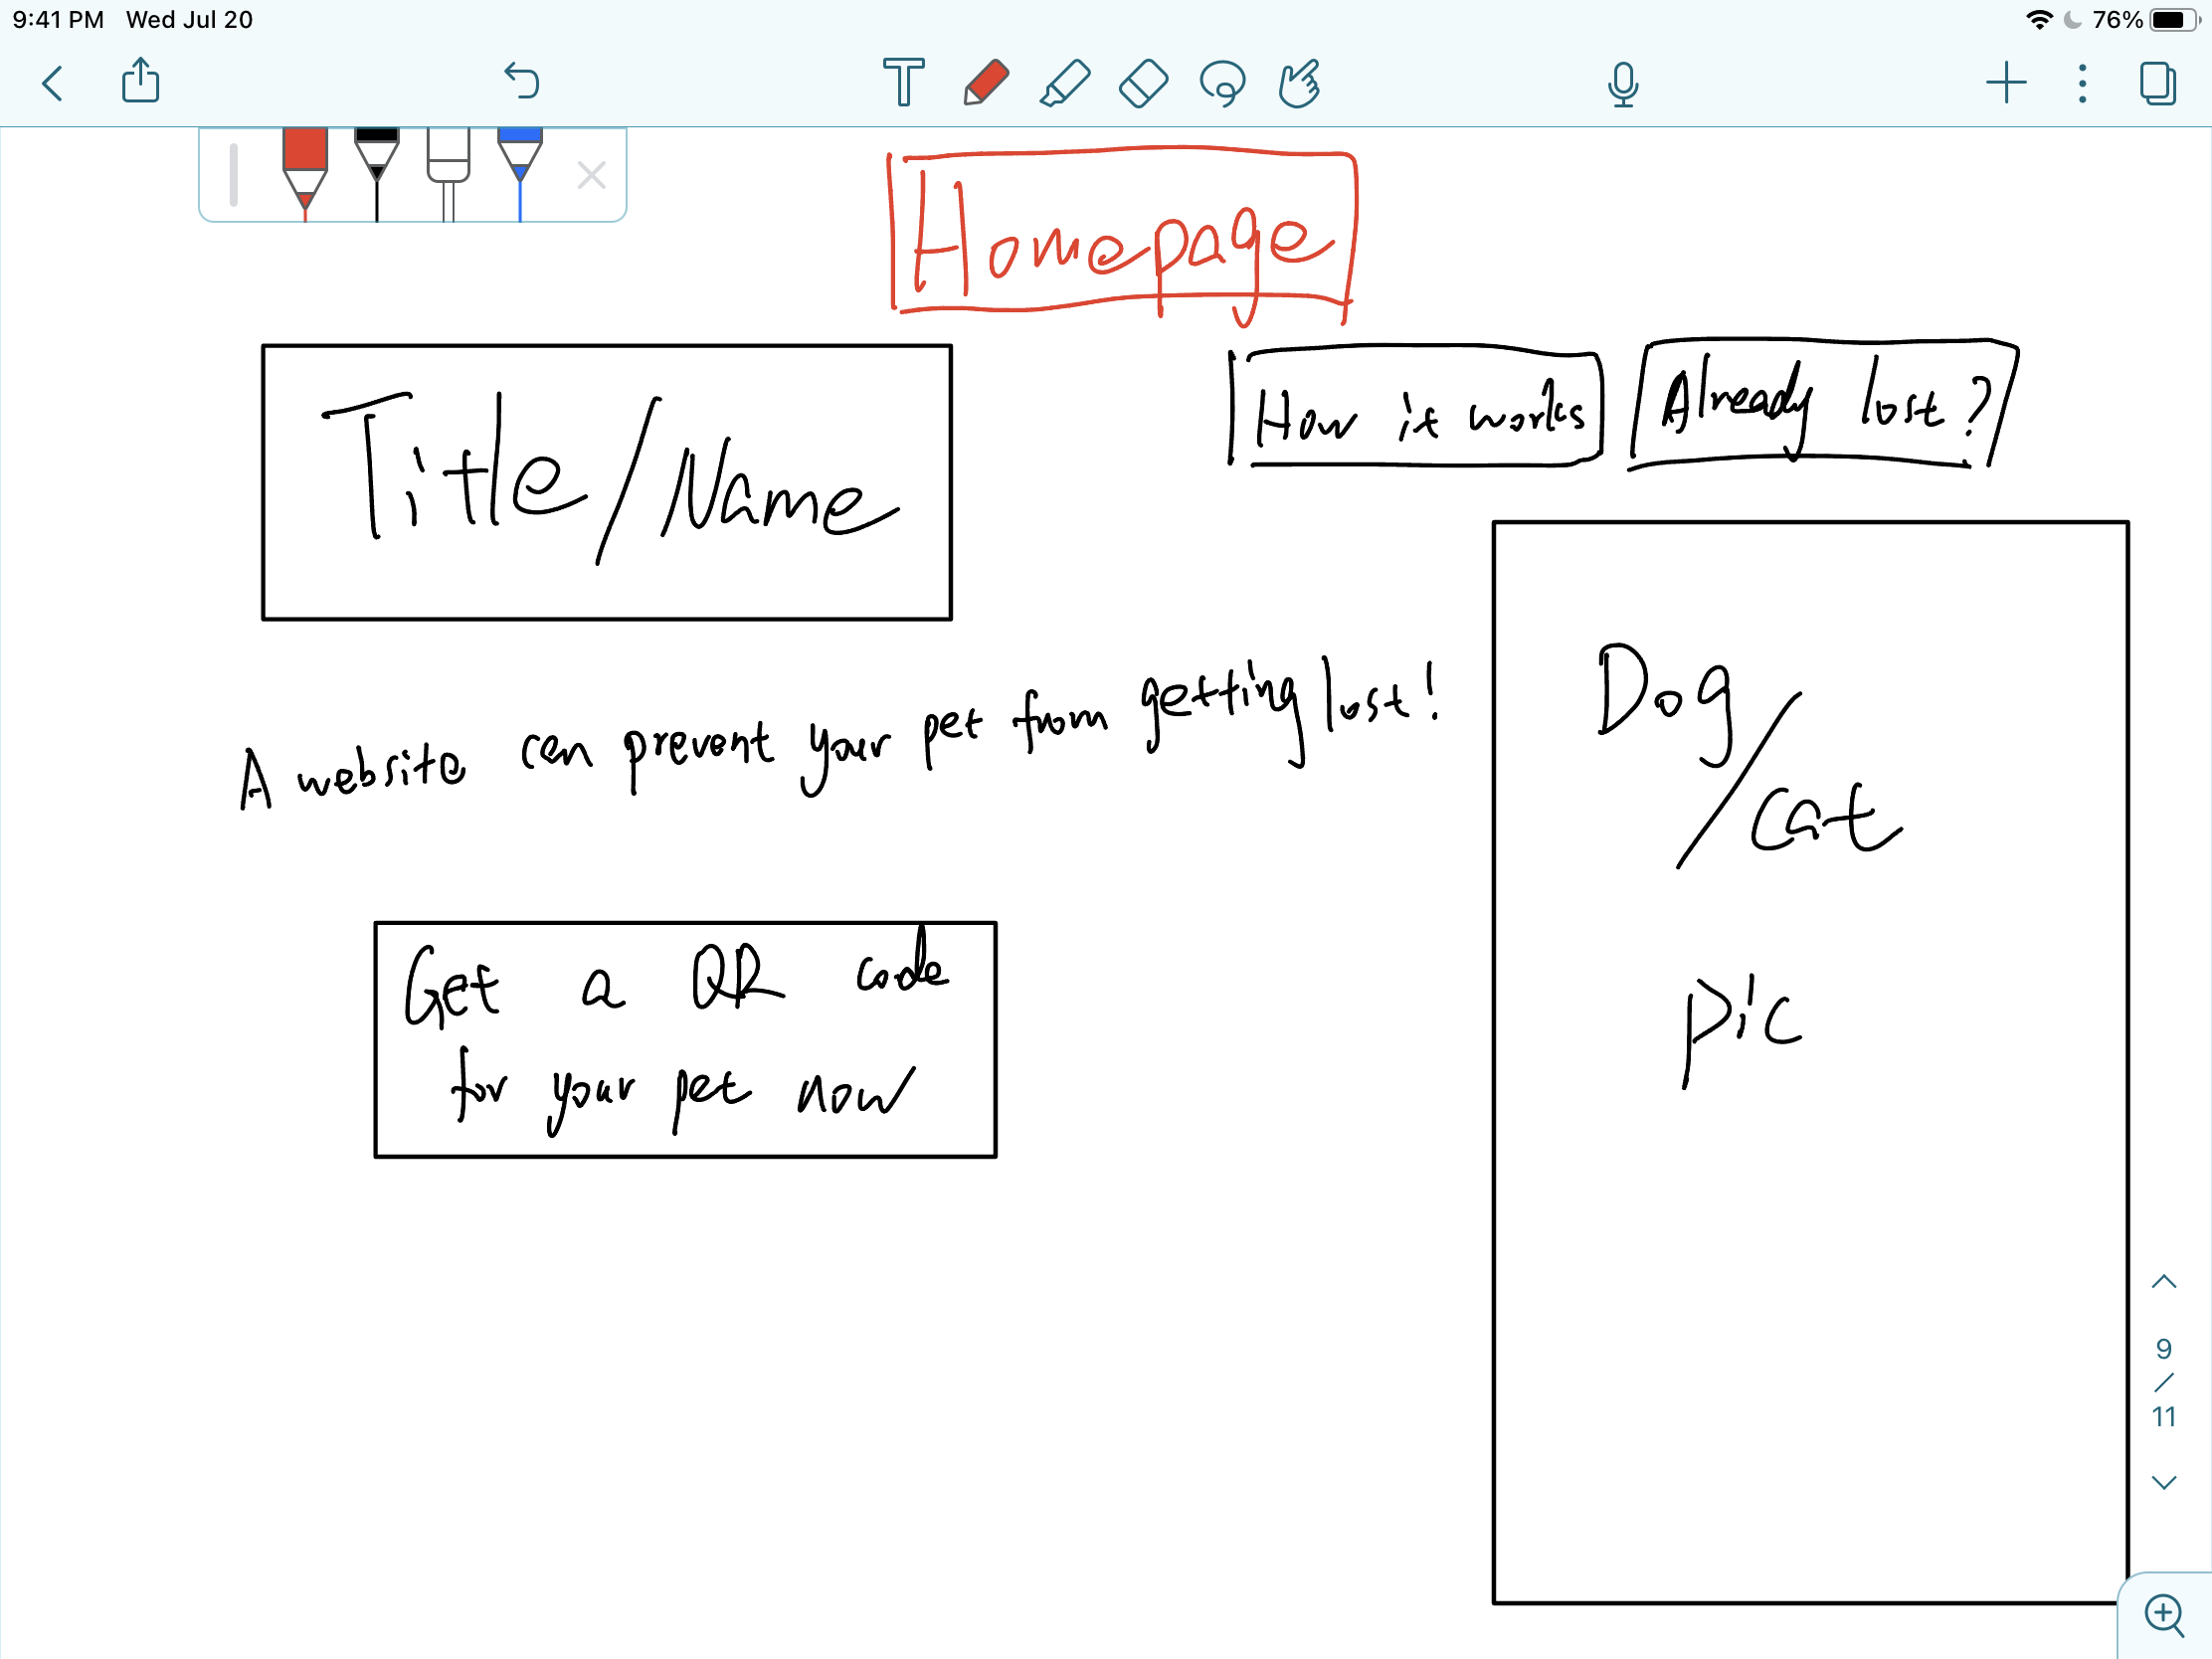 9:41 PM Wed Jul 20
76%
T
Homepage
Title/Name
How it works
Already lost?
A website can prevent your pet from getting lost!
Dog
/cat
pic
Get a QR code
for your pet now
9
/
11